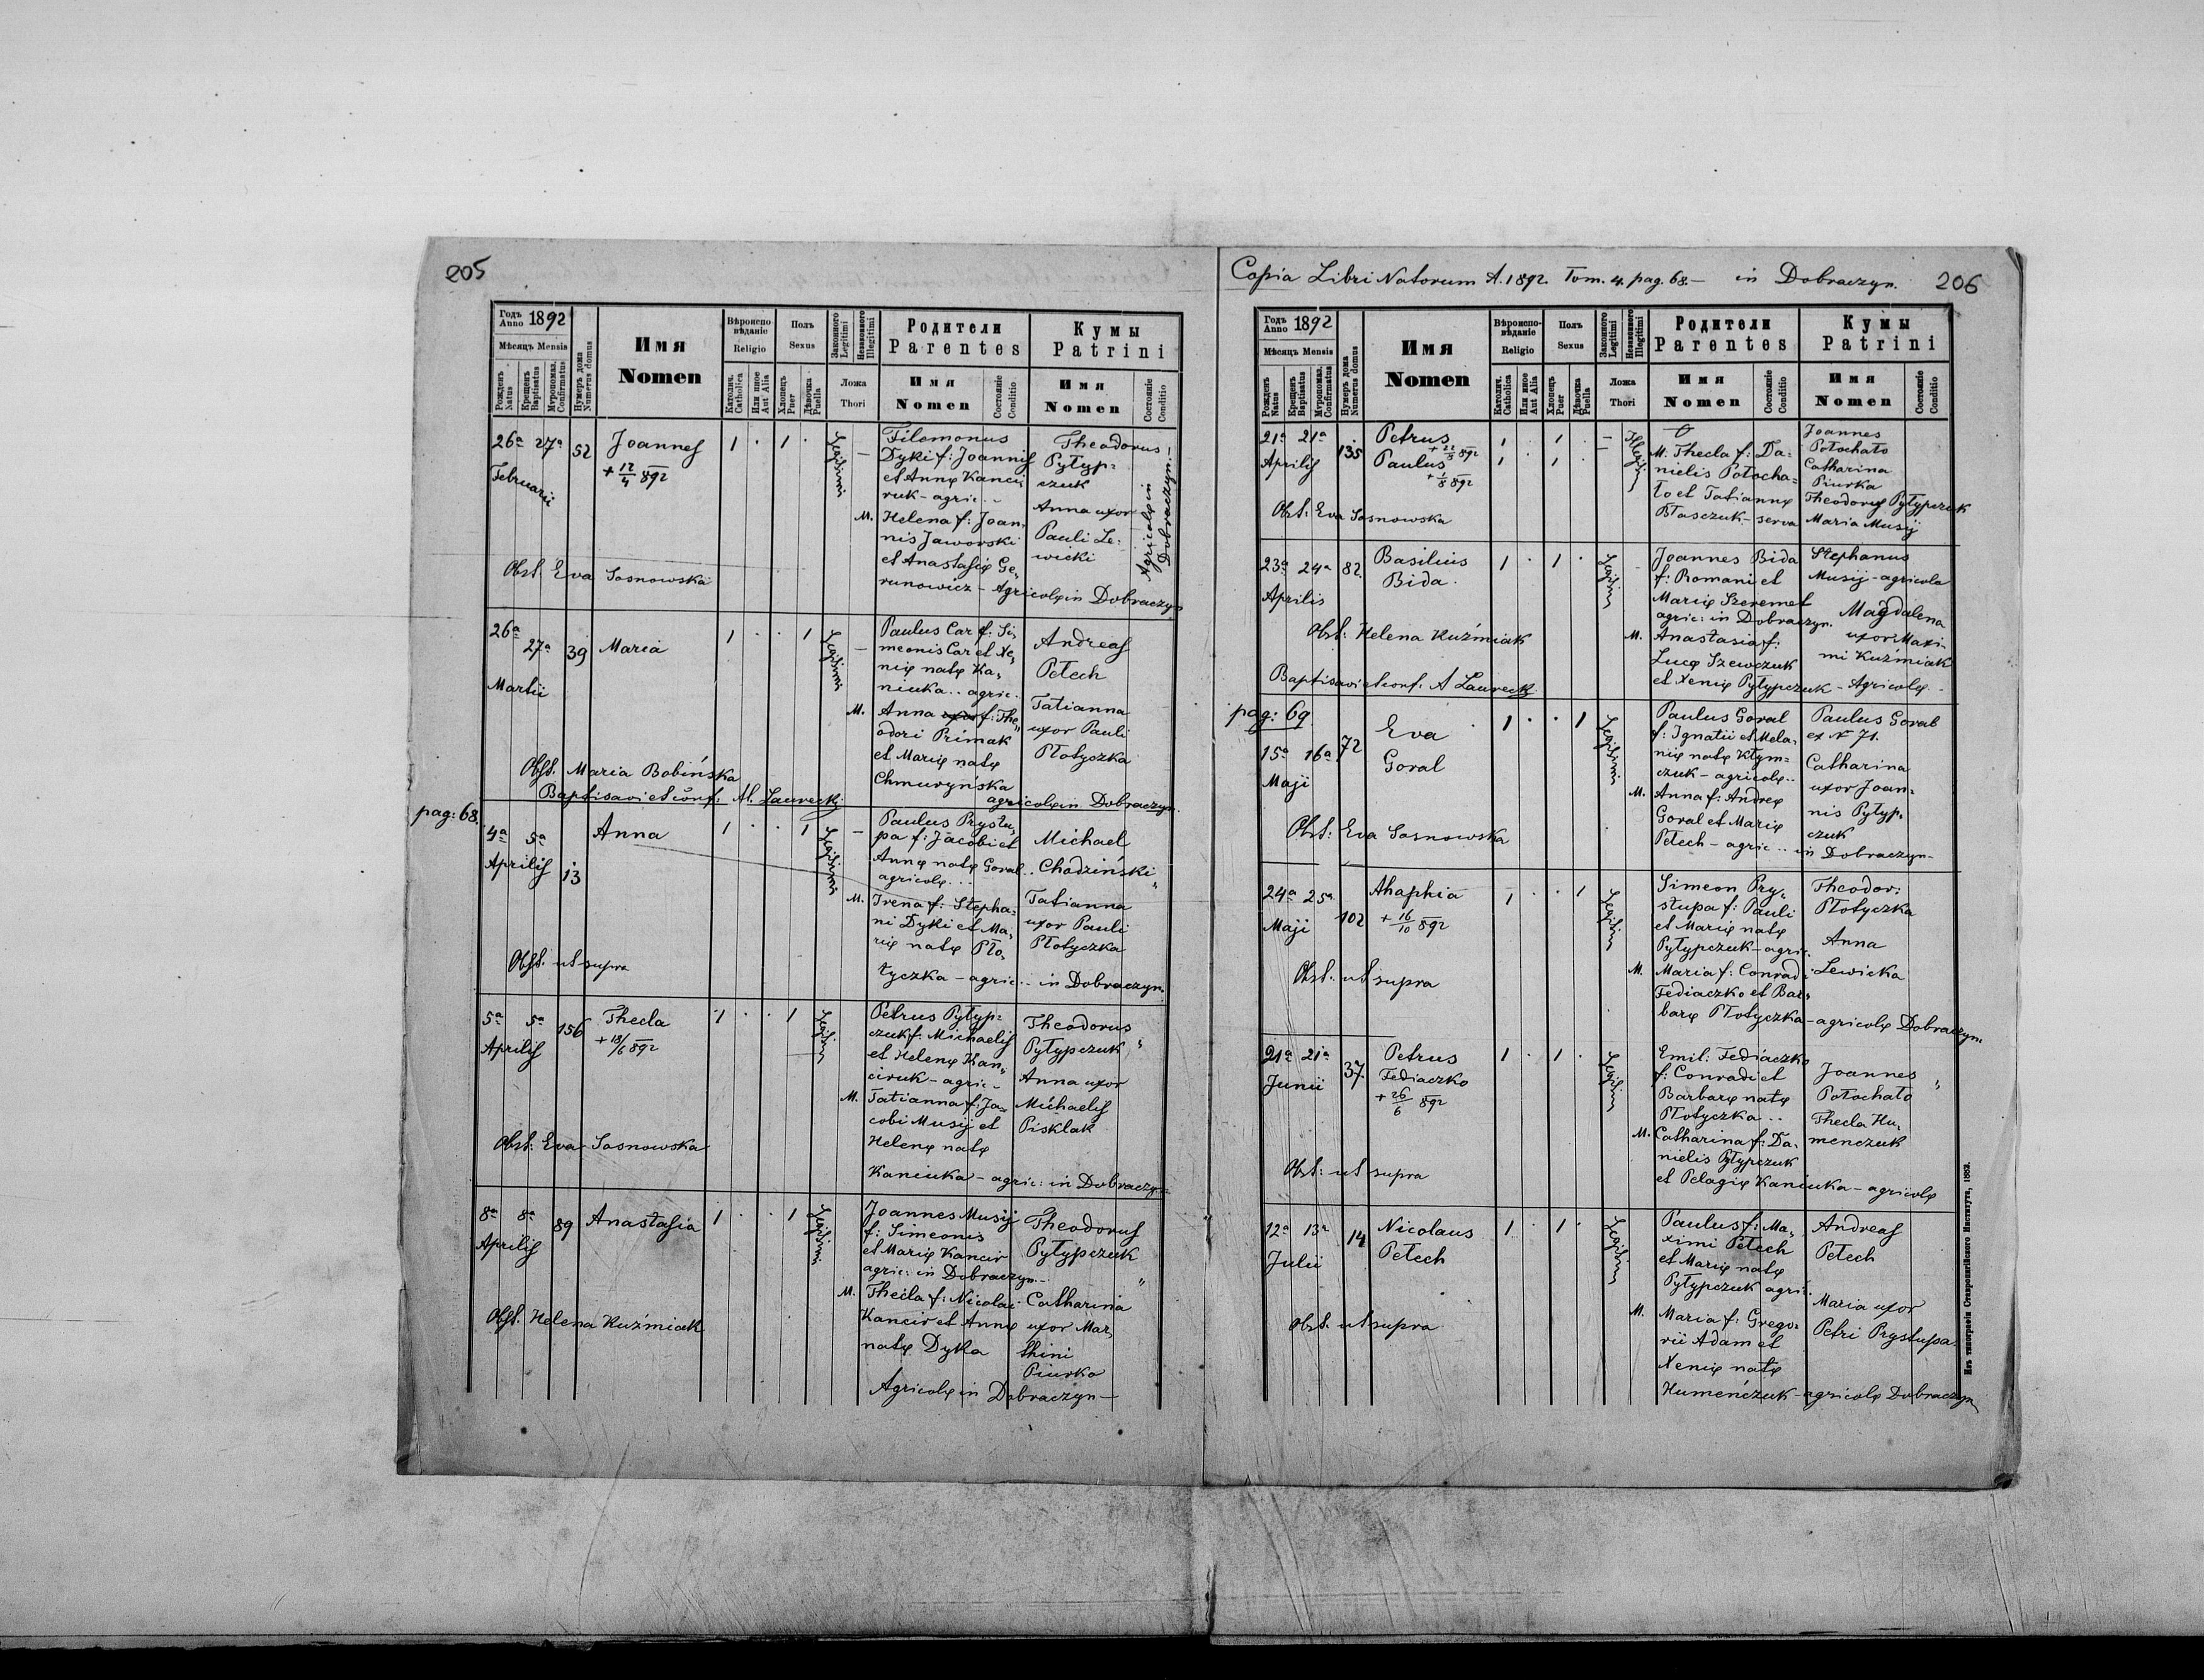 205
Годъ Anno 1892
Мѣсяцъ Mensis
Рожденъ Natus
Крещенъ Baptisatus
Мѵропомаз. Confirmatus
Нумеръ дома Numerus domus
Имя
Nomen
Вѣроиспо-
вѣданіе
Religio
Католич. Catholica
Или иное Aut Alia
Полъ
Sexus
Хлопецъ Puer
Дѣвочка Puella
Законного Legitimi
Незаконного Illegitimi
Ложа
Thori
Родители
Parentes
Имя
Nomen
Состояніе Conditio
Кумы
Patrini
Имя
Nomen
Состояніе Conditio
26ª 27ª 52 Joannes 1 · 1 · Legitimi
Februarii
+ 12/4 892
Filemonus
Dyki f: Joannis
et Annę Kanci
ruk - agric..
M. Helena f: Joan,
nis Jaworski
et Anastasię Ge,
runowicz - Agricolę in Dobraczyn
Theodorus
Pyłyp=
czuk
Anna uxor
Pauli Le=
wicki
Agricolę in
Dobraczyn.-
Obst. Eva Sosnowska
26ª 27ª 39 Maria 1 · · 1 Legitimi
Martii
Paulus Car f: Si,
meonis Car et Xe,
nię natę Ka,
niuka .. agric.
M. Anna uxor f: The,
odori Prímak
et Marię natę
Chmuryńska
agricolę in Dobraczyn.
Andreas
Petech
Tatianna
uxor Pauli
Płotyczka
Obst. Maria Bobińska
Baptisavi et conf. M. Laurecki
pag: 68.
4ª 5ª 13 Anna 1 · · 1 Legitimi
Aprilis
Paulus Prystu,
pa f: Jacobi et
Annę natę Goral..
agricolę...
M. Irena f: Stepha=
ni Dyki et Ma,
rię natę Pło,
tyczka - agric.. in Dobraczyn.
Michael
Chodziński
Tatianna
uxor Pauli
Płotyczka
Obst. ut supra
5ª 5ª 156 Thecla 1 · · 1 Legitimi
Aprilis
+ 18/6 892
Petrus Pyłyp=
czuk f: Michaelis
et Helenę Kan,
ciruk - agric -
M. Tatianna f: Ja=
cobi Musij et
Helenę natę
Kaniuka - agric: in Dobraczyn
Theodorus
Pyłypczuk
Anna uxor
Michaelis
Pisklak
Obst: Eva Sosnowska
8ª 8ª 89 Anastasia 1 · · 1 Legitimi
Aprilis
Joannes Musij
f: Simeonis
et Marię Kancir
agric: in Dobraczyn -
M. Thecla f: Nicolai
Kancir et Annę
natę Dyka
Agricolę in Dobraczyn -
Theodorus
Pyłypczuk
Catharina
uxor Mar,
thini
Piurko
Obst. Helena Kuźmiak
Copia Libri Natorum A. 1892. Tom. 4. pag. 68.- in Dobraczyn. 206
Годъ Anno 1892
Мѣсяцъ Mensis
Рожденъ Natus
Крещенъ Baptisatus
Мѵропомаз. Confirmatus
Нумеръ дома Numerus domus
Имя
Nomen
Вѣроиспо-
вѣданіе
Religio
Католич. Catholica
Или иное Aut Alia
Полъ
Sexus
Хлопецъ Puer
Дѣвочка Puella
Законного Legitimi
Незаконного Illegitimi
Ложа
Thori
Родители
Parentes
Имя
Nomen
Состояніе Conditio
Кумы
Patrini
Имя
Nomen
Состояніе Conditio
21ª 21ª 135 Petrus 1 · 1 ·
+ 22/5 892
Aprilis Paulus 1 · 1 ·
+ 1/8 892
M. Thecla f: Da=
nielis Potocha=
ło et Tatiannę
Błasczuk - serva
Joannes
Potochało
Catharina
Piurka
Theodorus Pyłypczuk
Maria Musij
Obst: Eva Sosnowska
23ª 24ª 82. Basilius 1 · 1 · Legitimi
Aprilis Bida.
Joannes Bida
f: Romani et
Marię Szeremet
agric: in Dobraczyn.
M. Anastasia f:
Lucę Szewczuk
et Xenię Pyłypczuk - Agricolę -
Stephanus
Musij - agricola
Magdalena
uxor Maxi-
mi Kuźmiak
Obst: Helena Kuźmiak
Baptisavi et conf. A Laurecki
pag: 69
15ª 16ª 72 Eva 1 · · 1 Legitimi
Maji Goral
Paulus Goral
f: Ignatii et Mela,
nię natę Kłym=
czuk - agricolę..
M. Anna f: Andreę
Goral et Marię
Petech - agric .. in Dobraczyn -
Paulus Goral
ex N 71.
Catharina
uxor Joan=
nis Pyłyp,
czuk
Obst: Eva Sosnowska
24ª 25ª 102 Ahaphia 1 · · 1 Legitimi
Maji
+ 16/10 892
Simeon Pry,
stupa f: Pauli
et Marię natę
Pyłypczuk - agric.
M. Maria f: Conradi
Fediaczko et Bar,
barę Płotyczka - agricolę Dobraczyn.
Theodor:
Płotyczka
Anna
Lewicka
Obst. ut supra
21ª 21ª 37. Petrus 1 · 1 · Legitimi
Junii Fediaczko
+ 26/6 892
Emil: Fediaczko
f: Conradi et
Barbarę natę
Płotyczka ..
M. Catharina f: Da,
nielis Pyłypczuk
et Pelagię Kaniuka - agricolę
Joannes
Potochało
Thecla Hu,
menczuk
Obst: ut supra
12ª 13ª 14 Nicolaus 1 · 1 · Legitimi
Julii Petech
Paulus f: Ma,
ximi Petech
et Marię natę
Pyłypczuk agri.
M. Maria f: Grego=
rii Adam et
Xenię natę
Humeńczuk - agricolę Dobraczyn
Andreas
Petech
Maria uxor
Petri Prystupa.
Obst. ut supra
Изъ типографіи Ставропигійского Института, 1883.